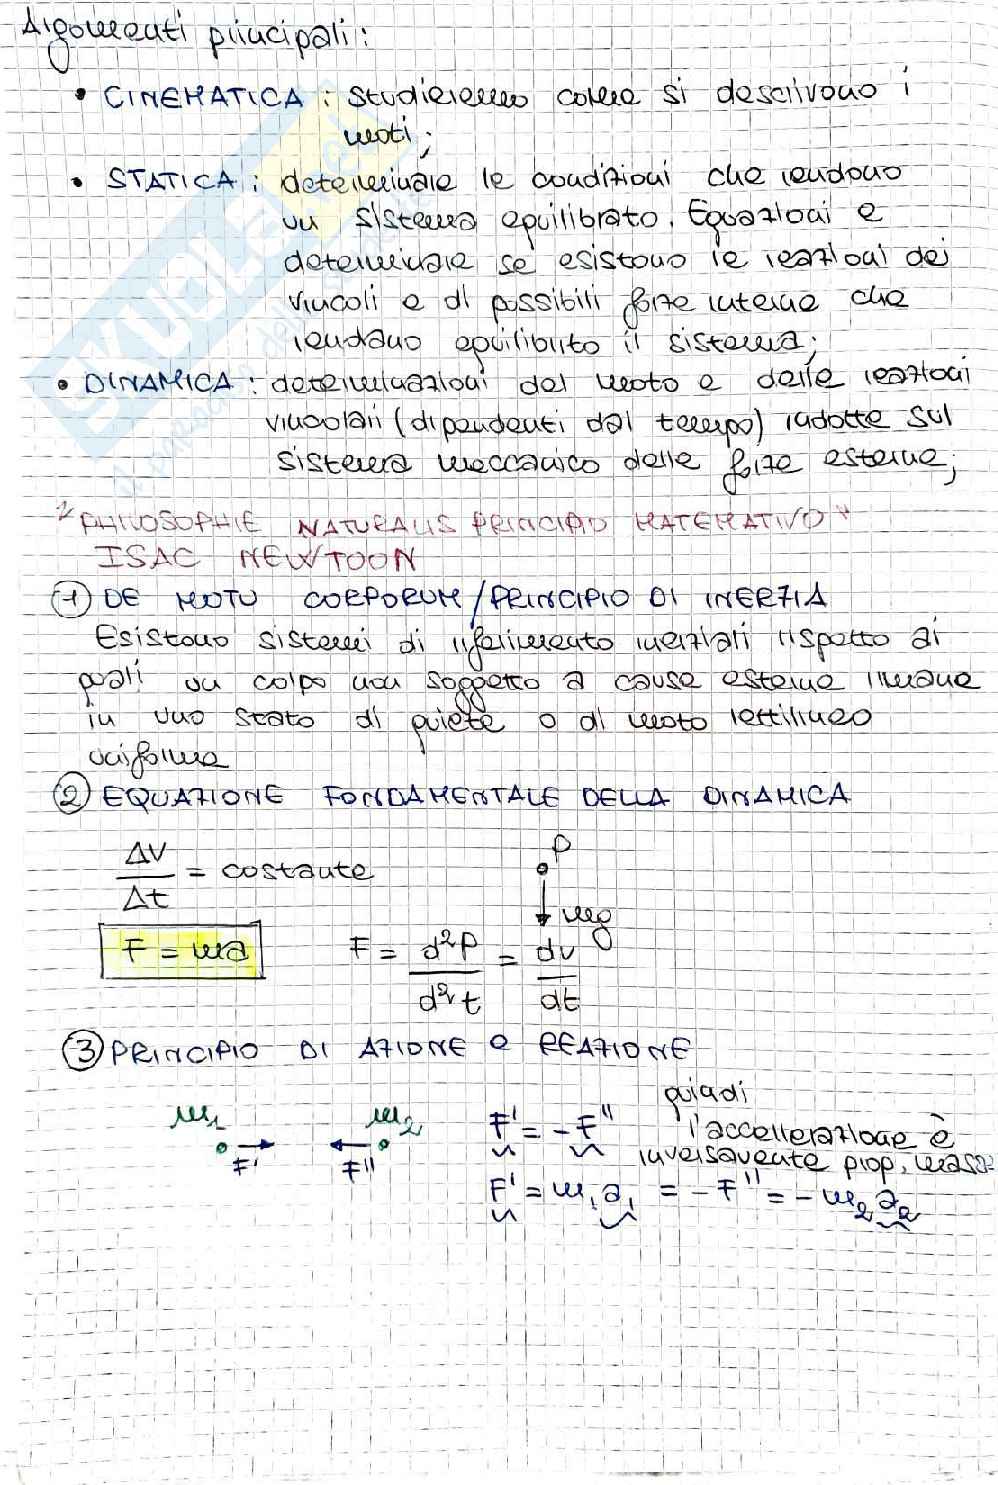 Argomenti principali:
• CINEMATICA: studieremo come si descrivono i
moti;
• STATICA: determinare le condizioni che rendono
un sistema equilibrato. Equazioni e
determinare se esistono le reazioni dei
vincoli e di possibili forze interne che
rendano equilibrito il sistema;
• DINAMICA: determinazioni del moto e delle reazioni
vincolari (dipendenti dal tempo) indotte sul
sistema meccanico delle forze esterne;
"PHILOSOPHIE NATURALIS PRINCIPIO MATEMATIVO"
ISAC NEWTOON
① DE MOTU CORPORUM/PRINCIPIO DI INERZIA
Esistono sistemi di riferimento inerziali rispetto ai
quali un corpo non soggetto a cause esterne rimane
in uno stato di quiete o di moto rettilineo
uniforme
② EQUAZIONE FONDAMENTALE DELLA DINAMICA
ΔV/Δt = costante
P
mg
F = ma
F = d²P/d²t = dv/dt
③ PRINCIPIO DI AZIONE e REAZIONE
m₁ m₂
F' F''
F' = -F''
quindi
l'accellerazione è
inversavente prop. massa
F' = m₁a₁ = -F'' = -m₂a₂
SKUOLA.net